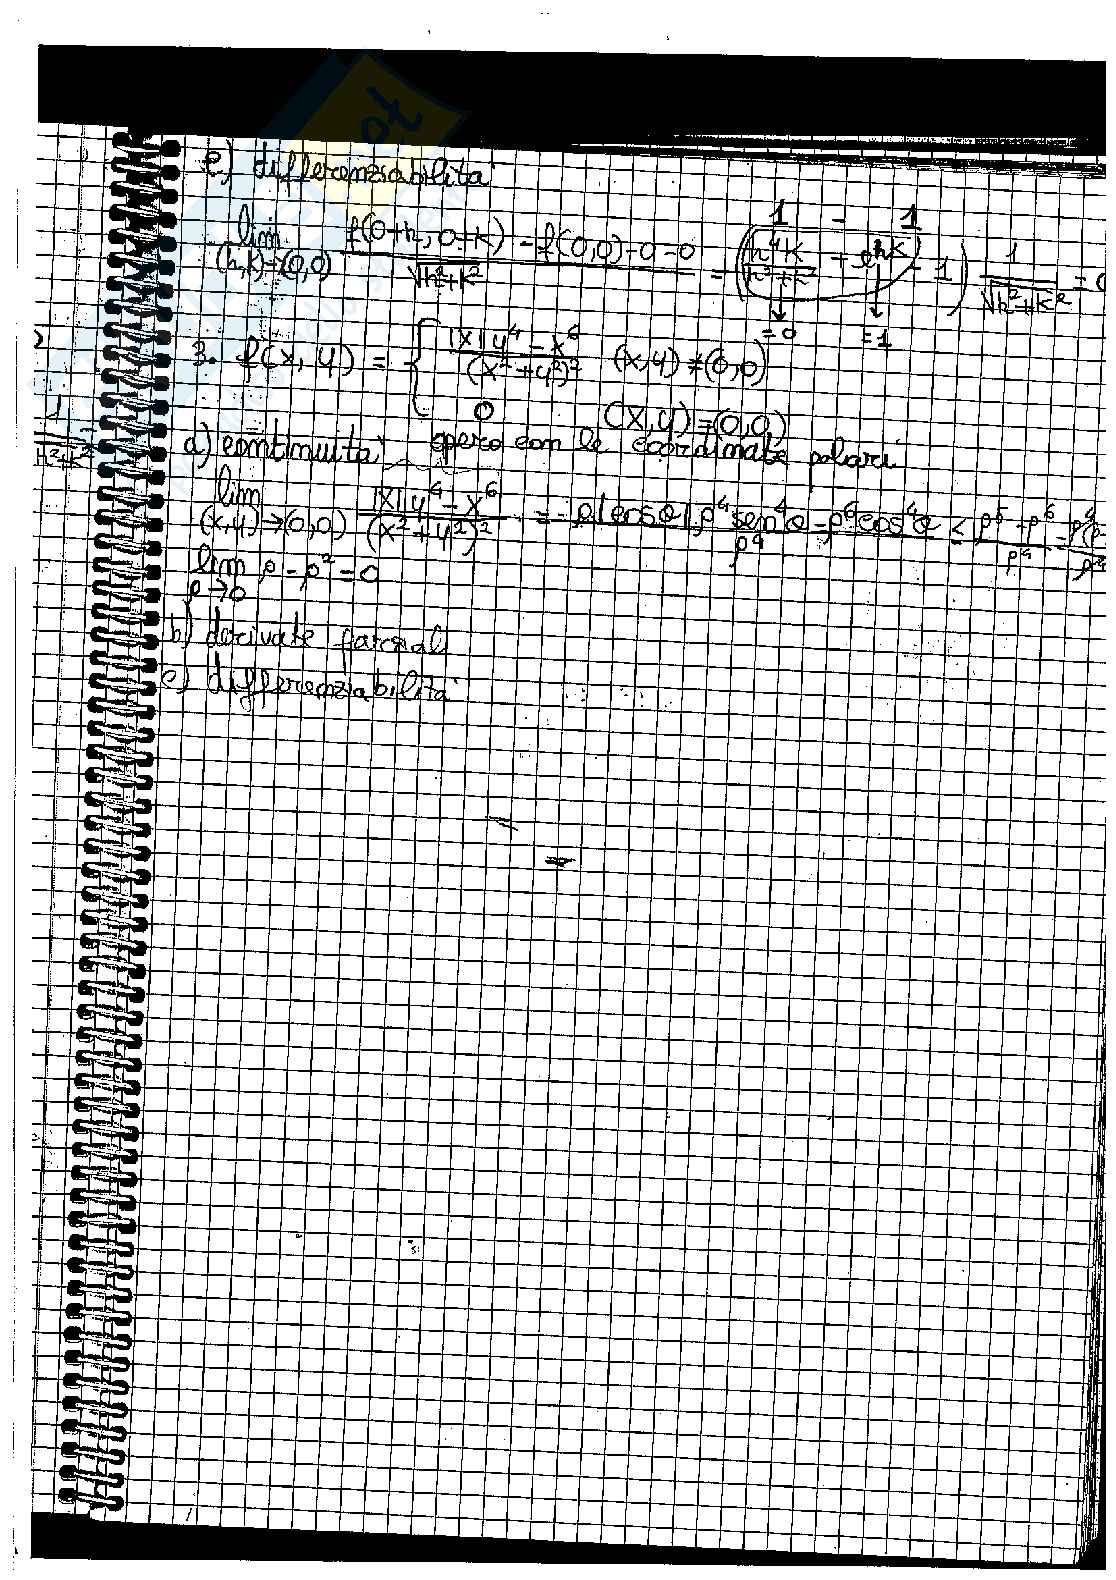 c) differenziabilità
lim (h,k)→(0,0) f(0+h, 0+k) - f(0,0) - 0 - 0 / √h²+k² = (h⁴k / h²+k² + e^hk - 1) 1 / √h²+k² = 0
1 - 1
↓ =0 ↓ =1
3. f(x, y) = { |x| y⁴ - x⁶ / (x² + y²)² (x,y) ≠ (0,0)
0 (x,y) = (0,0)
a) continuità opero con le coordinate polari
lim (x,y)→(0,0) |x| y⁴ - x⁶ / (x² + y²)² = ρ|cosθ| ρ⁴ sen⁴θ - ρ⁶ cos⁴θ / ρ⁴ ≤ ρ⁵ - ρ⁶ / ρ⁴ = ρ⁴(ρ- / ρ⁴
lim ρ→0 ρ - ρ² = 0
b) derivate parziali
c) differenziabilità